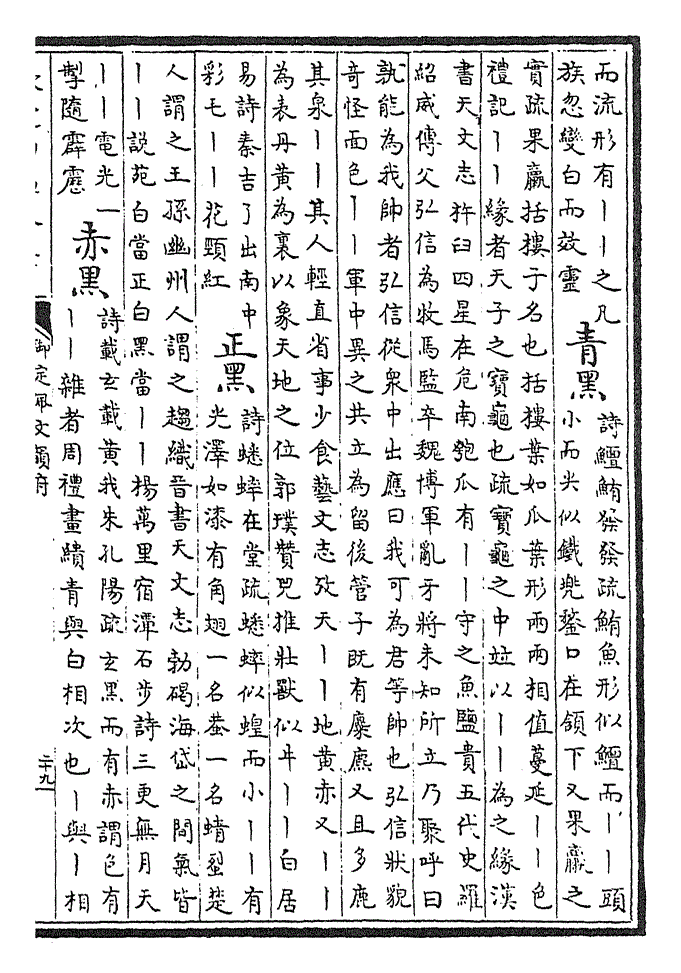 而流形有丨丨之凡
族忽變白而效靈
青黑
詩鱣鮪發發疏鮪魚形似鱣而丨丨頭
小而尖似鐵兜鍪口在頷下又果臝之
實疏果臝括樓子名也括樓葉如瓜葉形兩兩相值蔓延丨丨色
禮記丨丨緣者天子之寶龜也疏寶龜之中竝以丨丨為之緣漢
書天文志杵臼四星在危南匏瓜有丨丨守之魚鹽貴五代史羅
紹威傳父弘信為牧馬監卒魏博軍亂牙將未知所立乃聚呼曰
孰能為我帥者弘信從衆中出應曰我可為君等帥也弘信狀貌
奇怪面色丨丨軍中異之共立為留後管子既有麋麃又且多鹿
其泉丨丨其人輕直省事少食藝文志攷天丨丨地黃赤又丨丨
為表丹黃為裏以象天地之位郭璞贊兕推壯獸似牛丨丨白居
易詩秦吉了出南中
彩毛丨丨花頸紅
正黑
詩蟋蟀在堂疏蟋蟀似蝗而小丨丨有
光澤如漆有角翅一名蛬一名蜻蛚楚
人謂之王孫幽州人謂之趨織晉書天文志勃碣海岱之間氣皆
丨丨說苑白當正白黑當丨丨楊萬里宿潭石步詩三更無月天
丨丨電光一
掣隨霹靂
赤黑
詩載玄載黃我朱孔陽疏玄黑而有赤謂色有
丨丨雜者周禮畫繢青與白相次也丨與丨相
御定佩文韻府
二十九